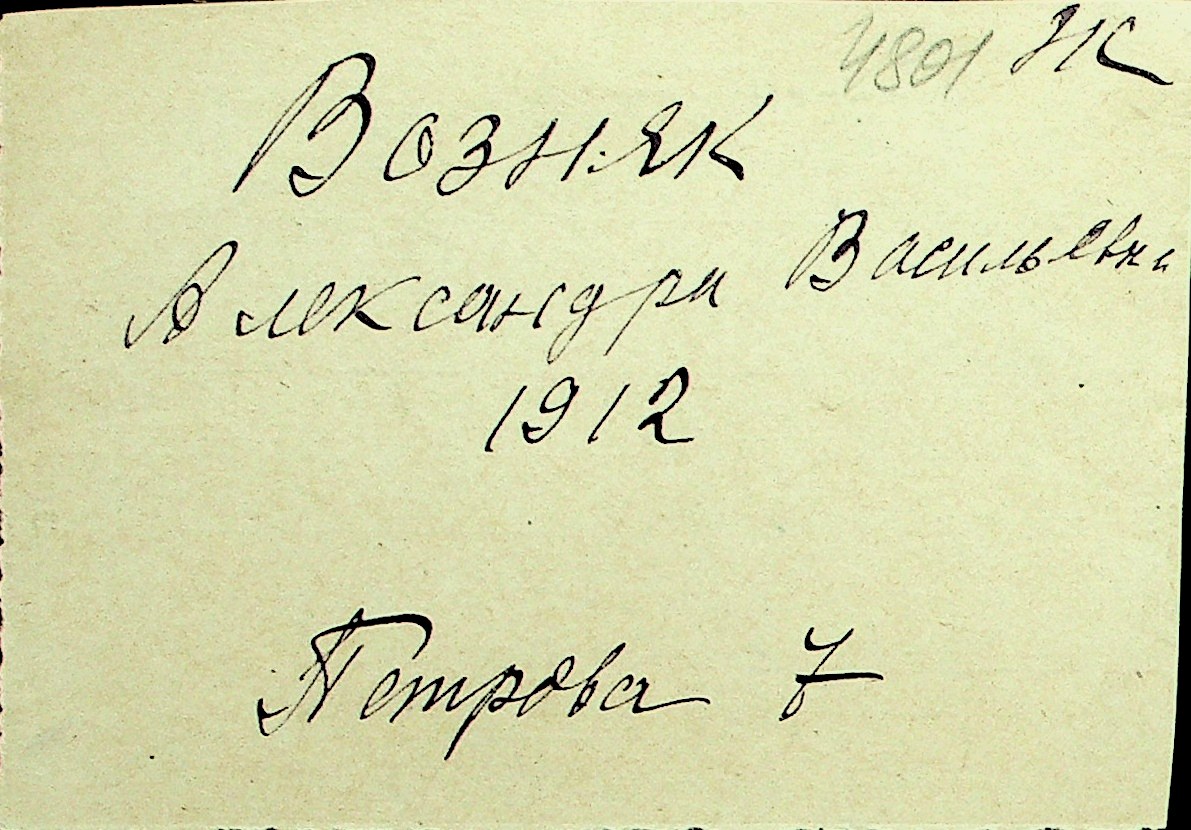 4801 Ж
Возняк
Александра Васильевна
1912
Петрова 7